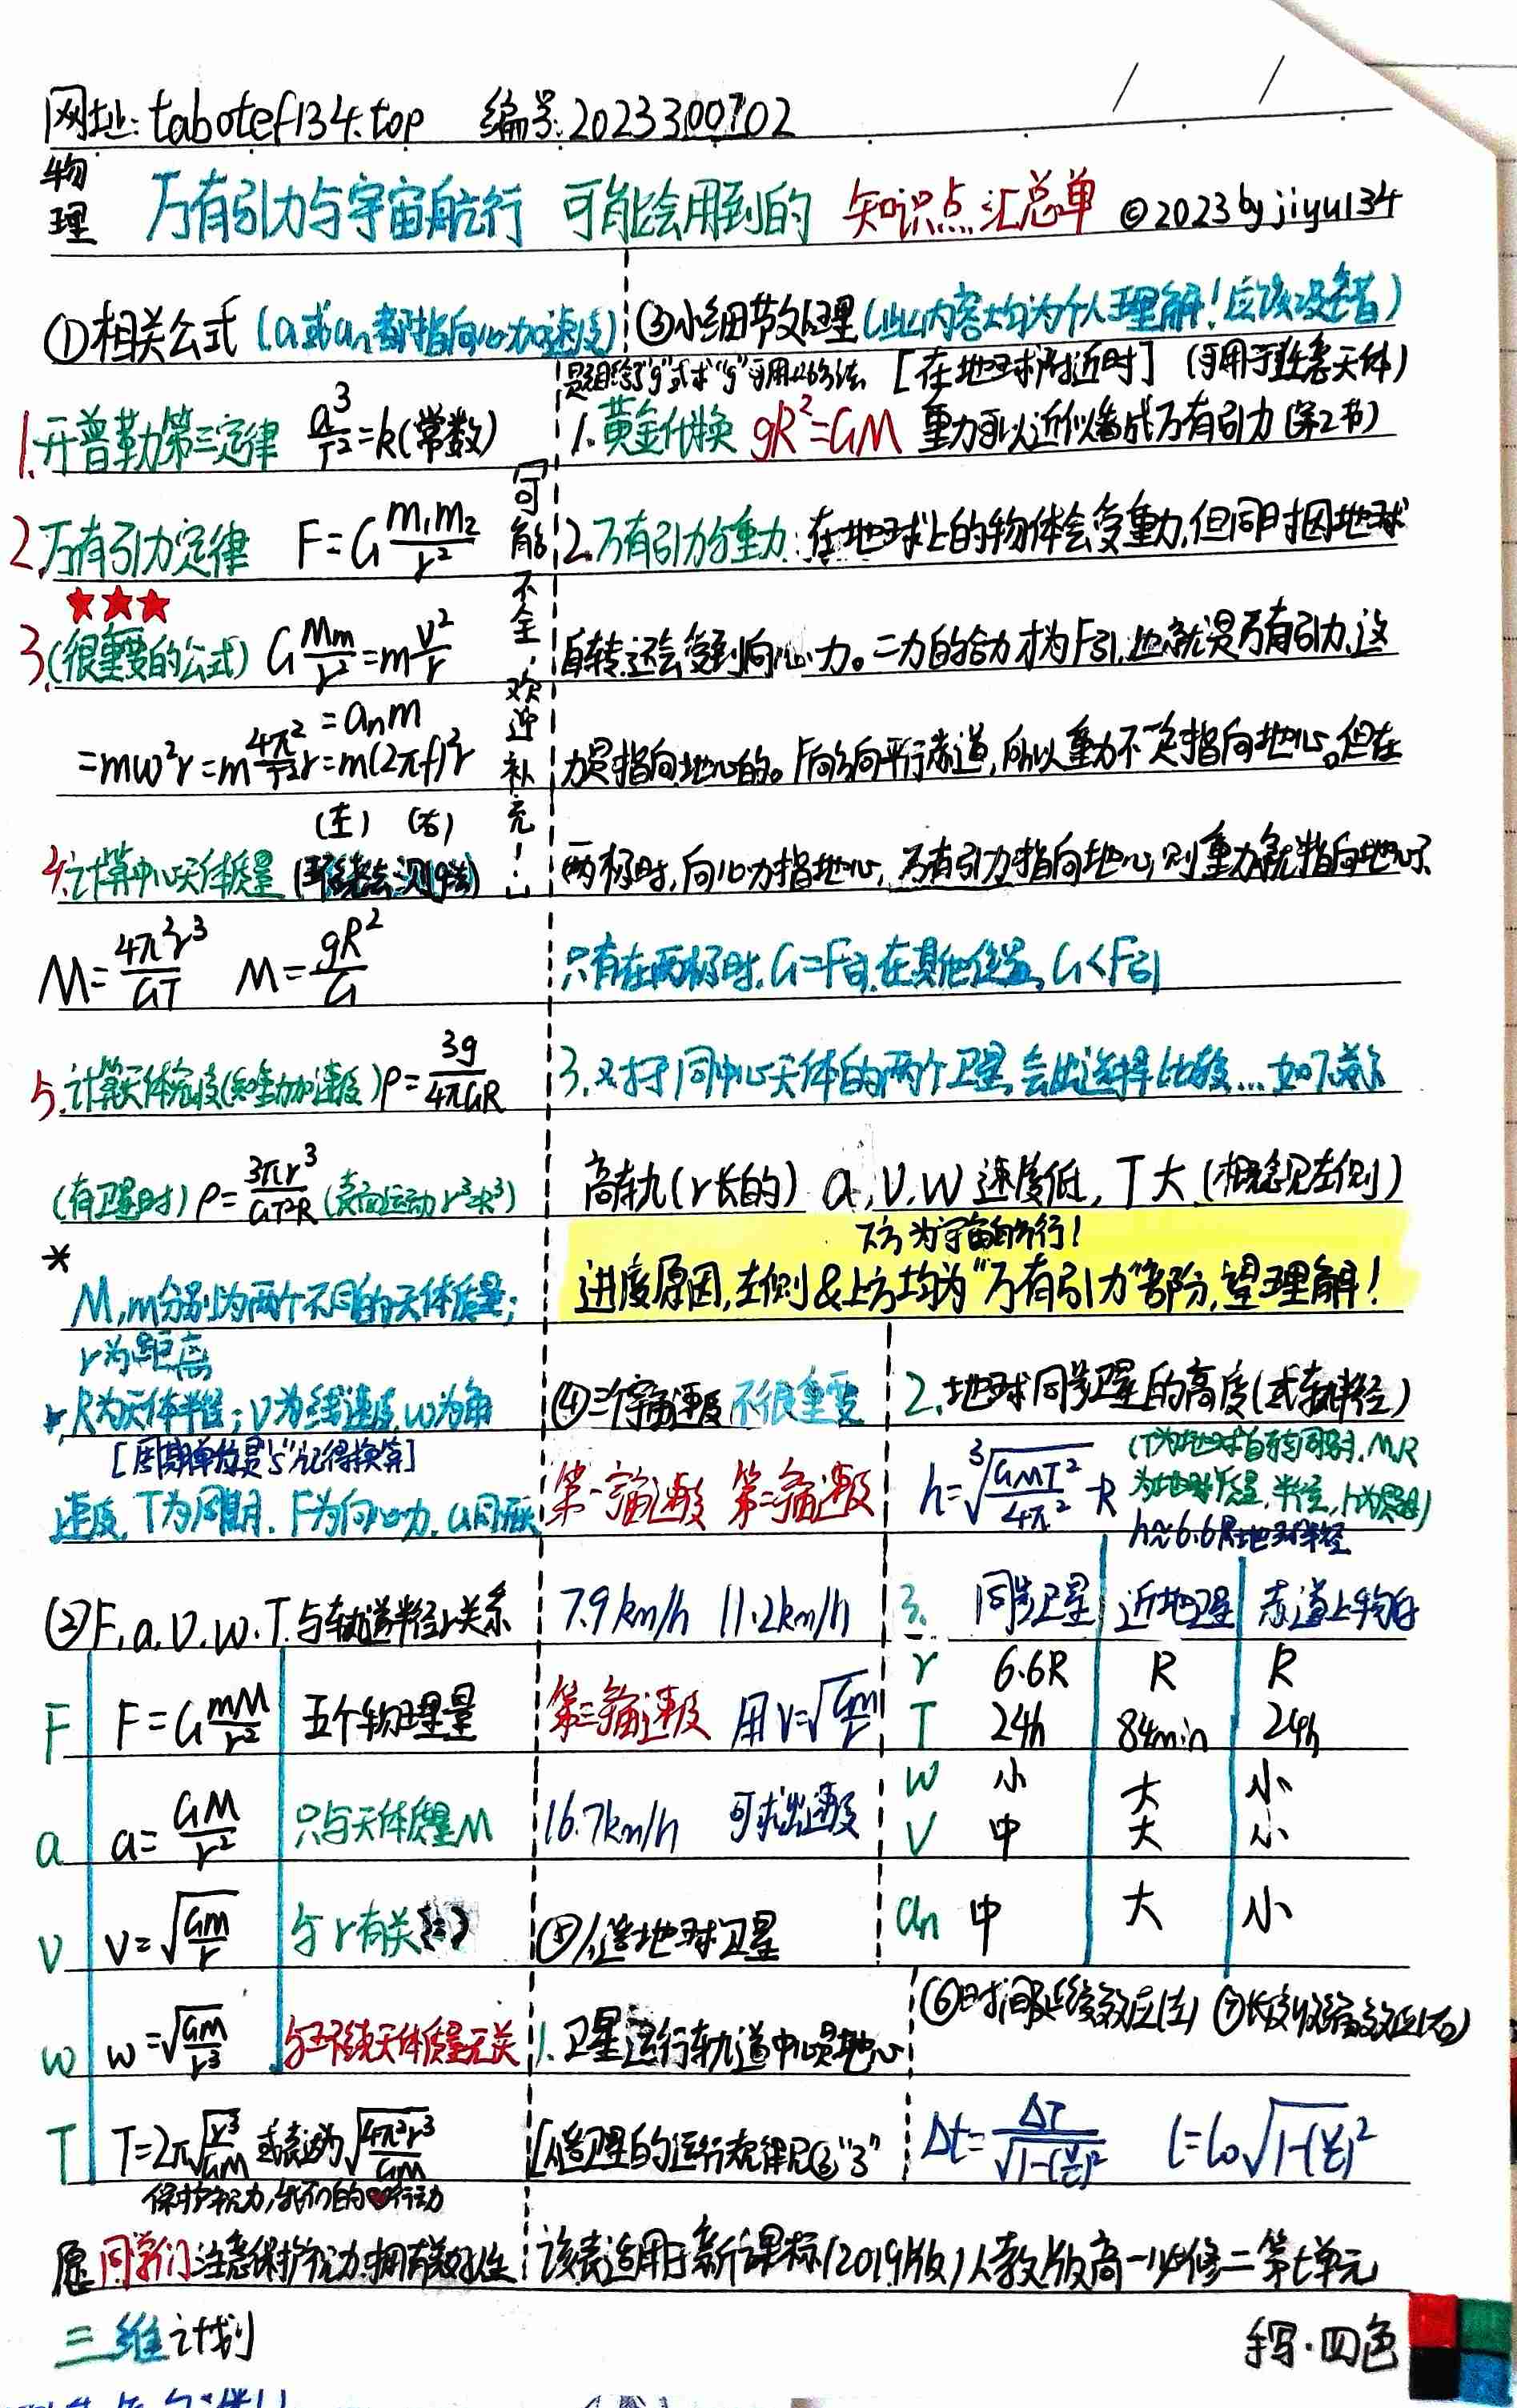 网址: tabotef134.top 编号:2023300702
物理 万有引力与宇宙航行 可能会用到的 知识点汇总单 ©2023 by jiyu134
①相关公式 (a或aₙ都指向心加速度)
1.开普勒第三定律 a³/T²=k(常数)
2.万有引力定律 F=G m₁m₂/r²
★★★
3.(很重要的公式) G Mm/r²=m v²/r
=aₙm
=mw²r=m 4π²/T² r=m(2πf)²r
(左) (右)
4.计算中心天体质量
M=4π²r³/GT M=gR²/G
5.计算天体密度(知重力加速度) ρ=3g/4πGR
(有卫星时) ρ=3πr³/GT²R (表面运动 r³=R³)
*
M,m分别为两个不同的天体质量;
r为距离
R为天体半径;v为线速度,w为角
[周期单位是"s"记得换算]
速度,T为周期,F为向心力,
可能不全,欢迎补充!
②F.a.v.w.T.与轨道半径r关系
F F=G mM/r² 五个物理量
a a=GM/r² 只与天体质量M
v v=√(Gm/r) 与r有关
w w=√(GM/r³) 与环绕天体质量无关
T T=2π√(r³/GM) 或表达为√(4π²r³/GM)
保护视力,我们的❤行动
愿同学们注意保护视力,拥有
三维计划
③小细节处理(此内容均为个人理解!应该没错)
题目给了"g"或求"g"可用此方法 [在地球附近时] (可用于任意天体)
1.黄金代换 gR²=GM 重力可以近似看成万有引力(第2节)
2.万有引力与重力:在地球上的物体会受重力,但同时因地球
自转还会受到向心力。二力的合力才为F引,也就是万有引力,这
力是指向地心的。F向方向平行赤道,所以重力不一定指向地心。但在
两极时,向心力指地心,万有引力指向地心,则重力就指向地心了
只有在两极时,G=F引,在其他位置,G<F引
3.对于同中心天体的两个卫星,会出选择比较...如下表示
高轨(r长的) a,v,w速度低,T大(概念见左侧)
下方为宇宙航行!
进度原因,左侧&上方均为"万有引力"部分,望理解!
④三个宇宙速度 不很重要
第一宇宙速度 第二宇宙速度
7.9km/h 11.2km/h
第三宇宙速度 用v=√(Gm/r)
16.7km/h 可求出速度
⑤人造地球卫星
1.卫星运行轨道中心是地心
[人造卫星的运行规律见②"3"
2.地球同步卫星的高度(或轨道半径)
h=³√(GMT²/4π²)-R (T为地球自转周期,M,R
为地球质量,半径,h为高度)
h≈6.6R地球半径
3. 同步卫星 近地卫星 赤道上物体
r 6.6R R R
T 24h 84min 24h
w 小 大 小
v 中 大 小
aₙ 中 大 小
⑥时间延缓效应(左) ⑦长度收缩效应(右)
Δt=Δτ/√(1-(v/c)²) l=l₀√(1-(v/c))²
该表适用于新课标(2019版)人教版高一必修二第七单元
手写·四色